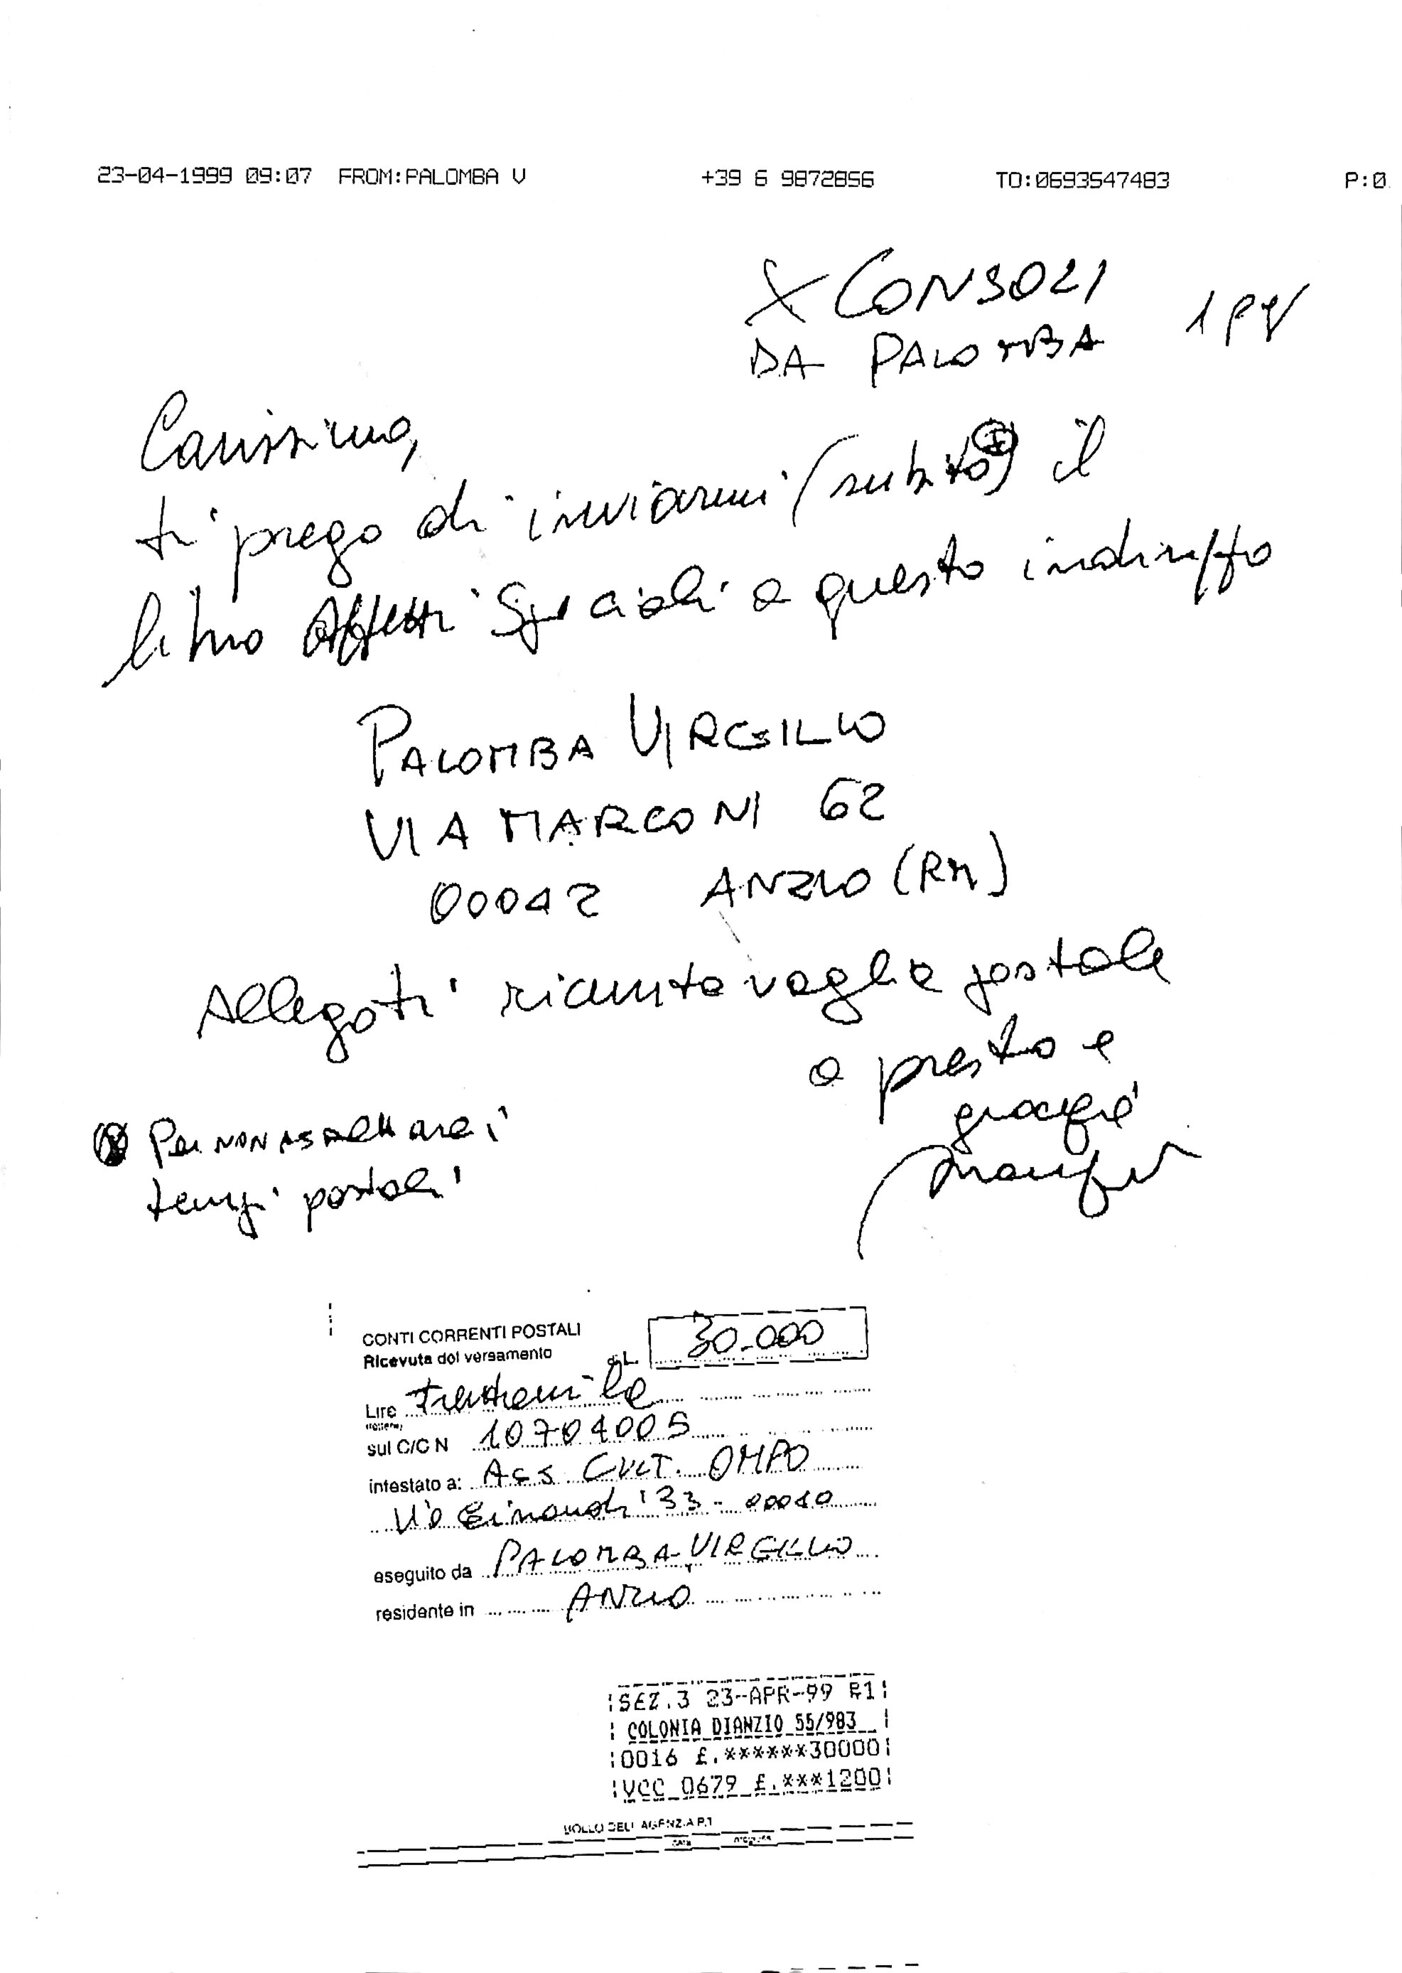 23-04-1999 09:07 FROM:PALOMBA V +39 6 9872856 TO:0693547483 P:0
X CONSOLI
DA PALOMBA 1 pg
Carissimo,
ti prego di inviarmi (subito) il
libro Affetti Speciali a questo indirizzo
PALOMBA VIRGILIO
VIA MARCONI 62
00042 ANZIO (RM)
Allegati ricevuta vaglia postale
a presto e
grazie
Per non aspettare i
tempi postali
CONTI CORRENTI POSTALI
Ricevuta del versamento di L. 30.000
Lire Trentamila
sul C/C N 10704005
intestato a: Ass CULT. OMPO
Via Einaudi 33 - 00040
eseguito da PALOMBA VIRGILIO
residente in ANZIO
SEZ.3 23-APR-99 R1
COLONIA DIANZIO 55/983
0016 £.******30000
VCC 0679 £.***1200
BOLLO DELL'AGENZIA P.T.